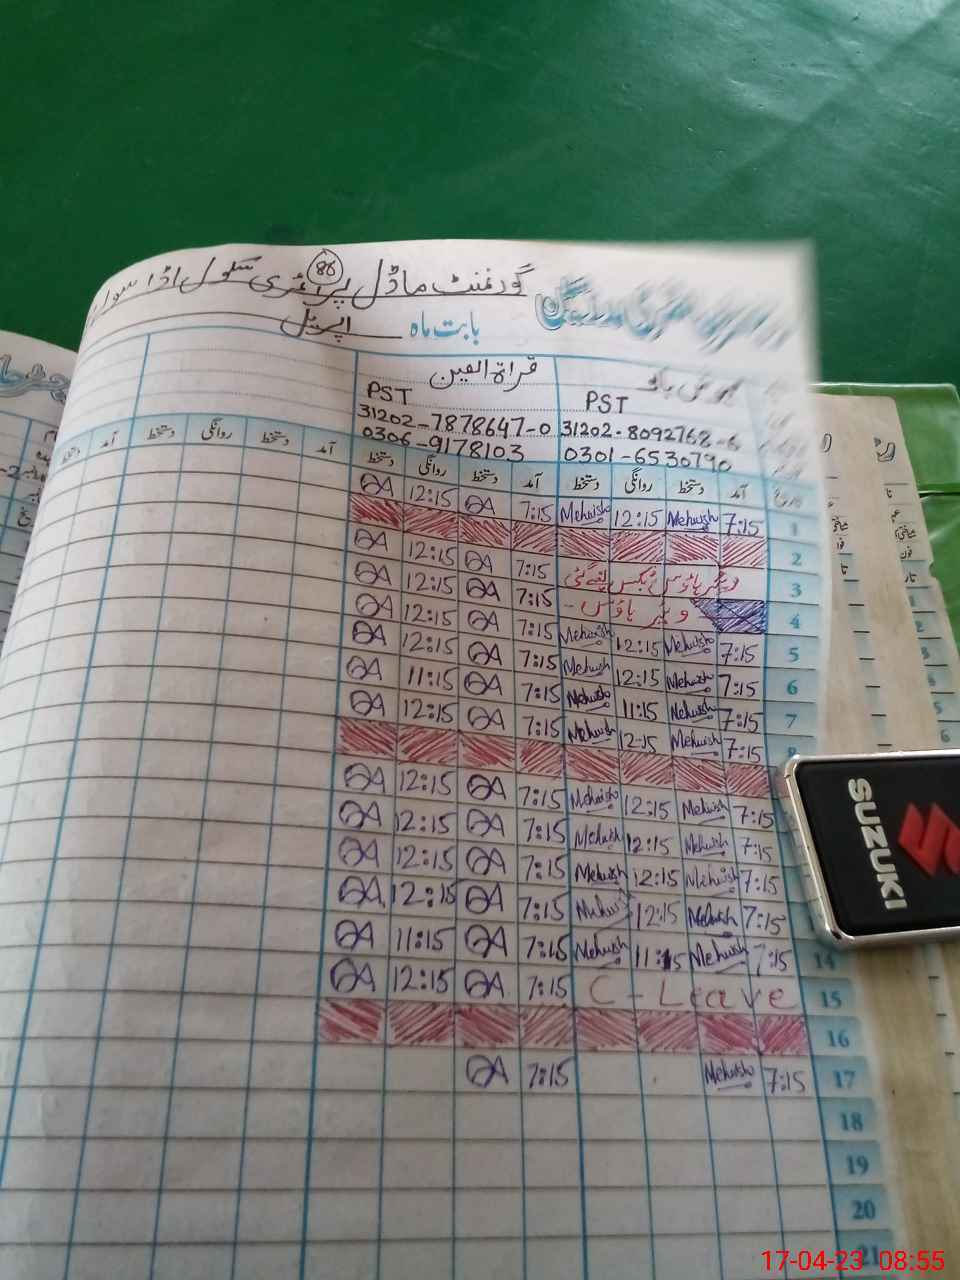 گورنمنٹ ماڈل پرائمری سکول اڈا
86
بابت ماہ اپریل
قراۃ العین
PST PST
31202-8092768-6 31202-7878647-0
0301-6530790 0306-9178103
تاریخ آمد دستخط روانگی دستخط آمد دستخط روانگی دستخط آمد دستخط روانگی دستخط
1 7:15 Mehwish 12:15 Mehwish 7:15 QA 12:15 QA
2
3 7:15 QA 12:15 QA
4 ویئر ہاؤس 7:15 QA 12:15 QA
5 7:15 Mehwish 12:15 Mehwish 7:15 QA 12:15 QA
6 7:15 Mehwish 12:15 Mehwish 7:15 QA 12:15 QA
7 7:15 Mehwish 11:15 Mehwish 7:15 QA 11:15 QA
8 7:15 Mehwish 12:15 Mehwish 7:15 QA 12:15 QA
7:15 Mehwish 12:15 Mehwish 7:15 QA 12:15 QA
7:15 Mehwish 12:15 Mehwish 7:15 QA 12:15 QA
7:15 Mehwish 12:15 Mehwish 7:15 QA 12:15 QA
7:15 Mehwish 12:15 Mehwish 7:15 QA 12:15 QA
14 7:15 Mehwish 11:15 Mehwish 7:15 QA 11:15 QA
15 C-Leave 7:15 QA 12:15 QA
16
17 7:15 Mehwish 7:15 QA
18
19
20
21
SUZUKI
17-04-23 08:55